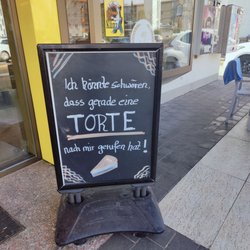 Ich könnte schwören,
dass gerade eine
TORTE
nach mir gerufen hat!